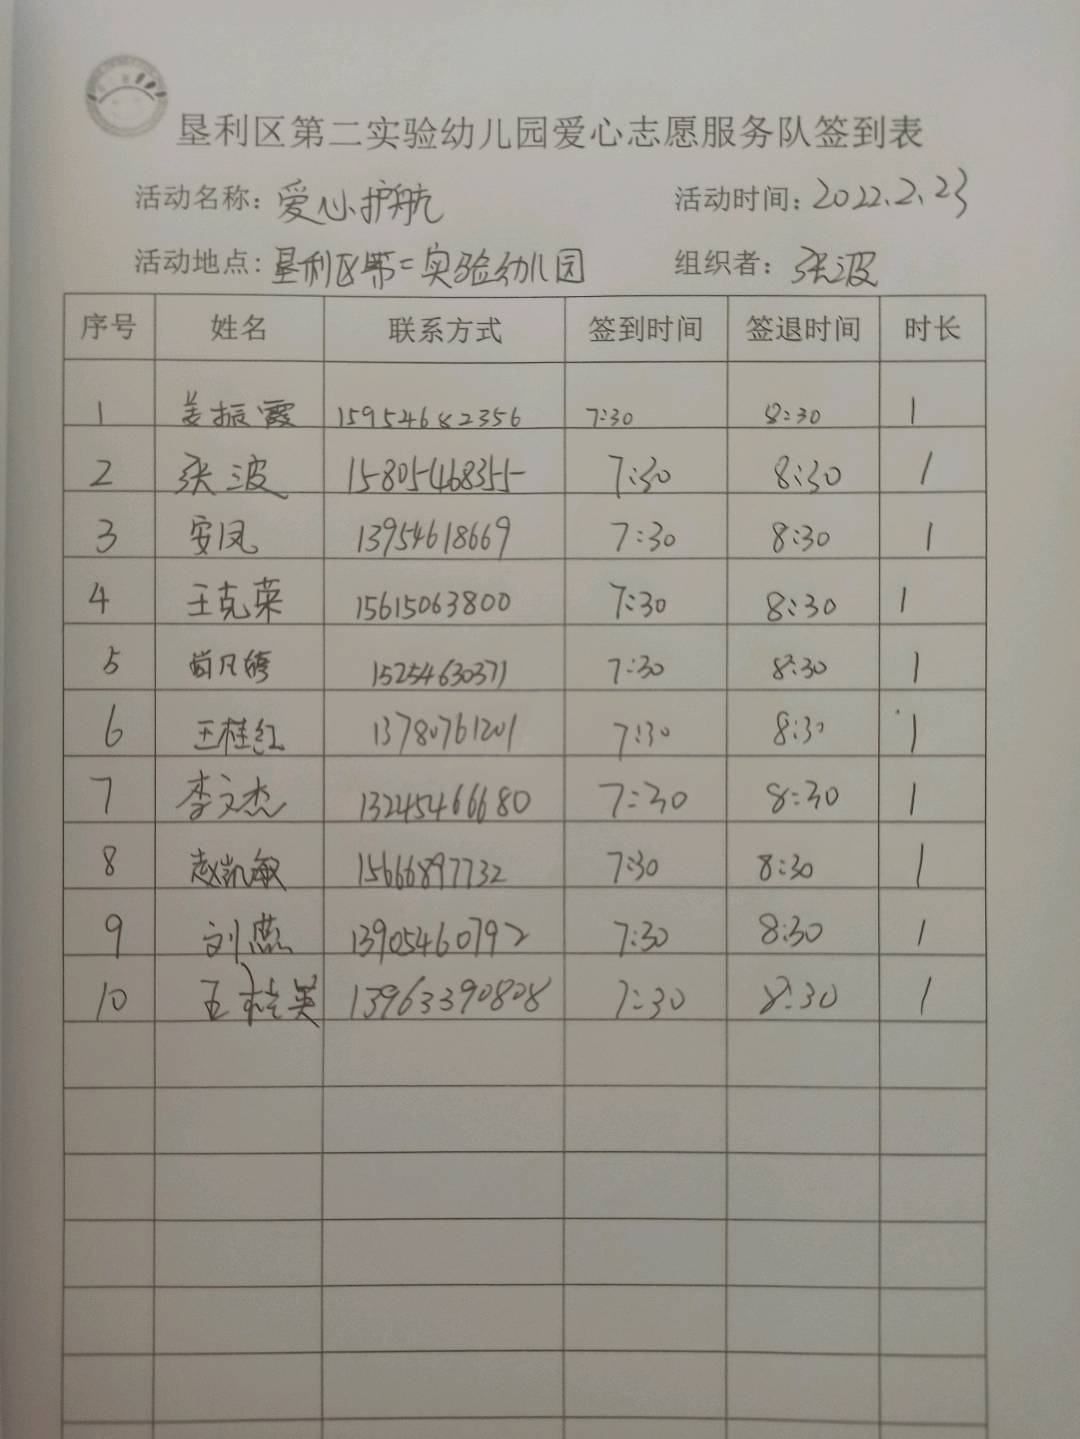 垦利区第二实验幼儿园爱心志愿服务队签到表
活动名称：爱心护航 活动时间：2022.2.23
活动地点：垦利区第二实验幼儿园 组织者：张波
序号 姓名 联系方式 签到时间 签退时间 时长
1 姜振霞 15954682356 7:30 8:30 1
2 张波 15805468355 7:30 8:30 1
3 安凤 13954618669 7:30 8:30 1
4 王克荣 15615063800 7:30 8:30 1
5 15254630371 7:30 8:30 1
6 王桂红 13780761201 7:30 8:30 1
7 李文杰 13245466680 7:30 8:30 1
8 赵凯敏 15666897732 7:30 8:30 1
9 刘燕 13905460792 7:30 8:30 1
10 王桂英 13963390808 7:30 8:30 1